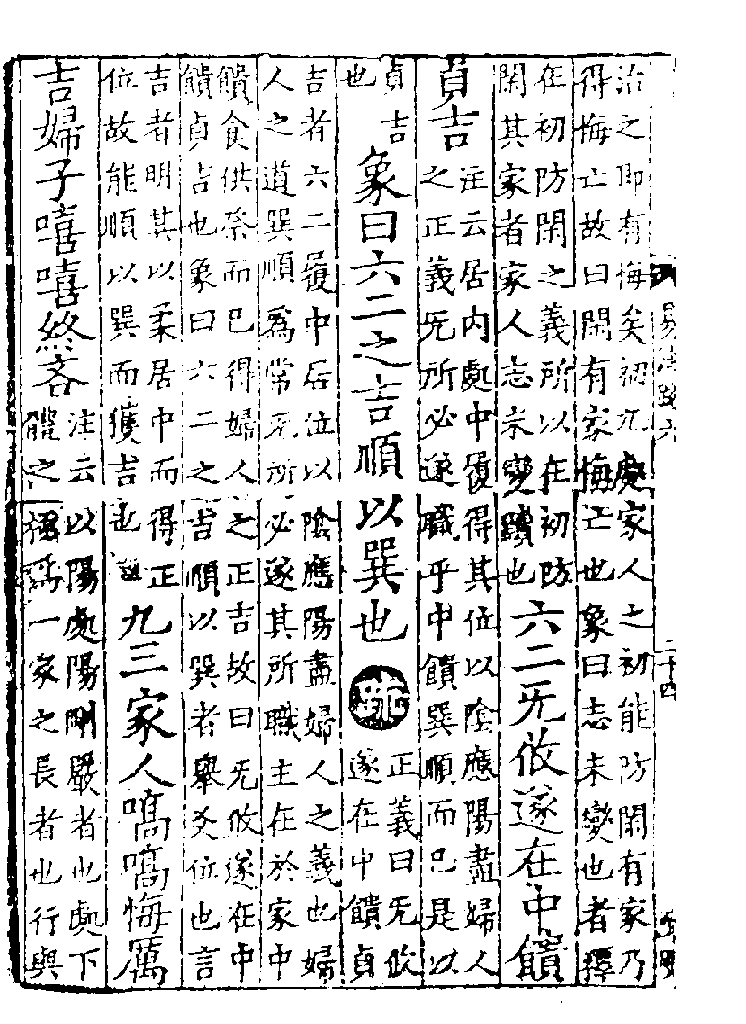 治之即有悔矣初九處家人之初能防閑有家乃
得悔亡故曰閑有家悔亡也象曰志未變也者釋
在初防閑之義所以在初防
閑其家者家人志未變黷也
六二无攸遂在中饋
貞吉
注云居内處中履得其位以陰應陽盡婦人
之正義无所必遂職乎中饋巽順而已是以
貞吉
也
象曰六二之吉順以巽也
疏
正義曰无攸
遂在中饋貞
吉者六二履中居位以陰應陽盡婦人之義也婦
人之道巽順爲常无所必遂其所職主在於家中
饋食供祭而已得婦人之正吉故曰无攸遂在中
饋貞吉也象曰六二之吉順以巽者舉爻位也言
吉者明其以柔居中而得正
位故能順以巽而獲吉也
九三家人嗃嗃悔厲
吉婦子嘻嘻終吝
注云以陽處陽剛嚴者也處下
體之極爲一家之長者也行與
易注疏六
二十四